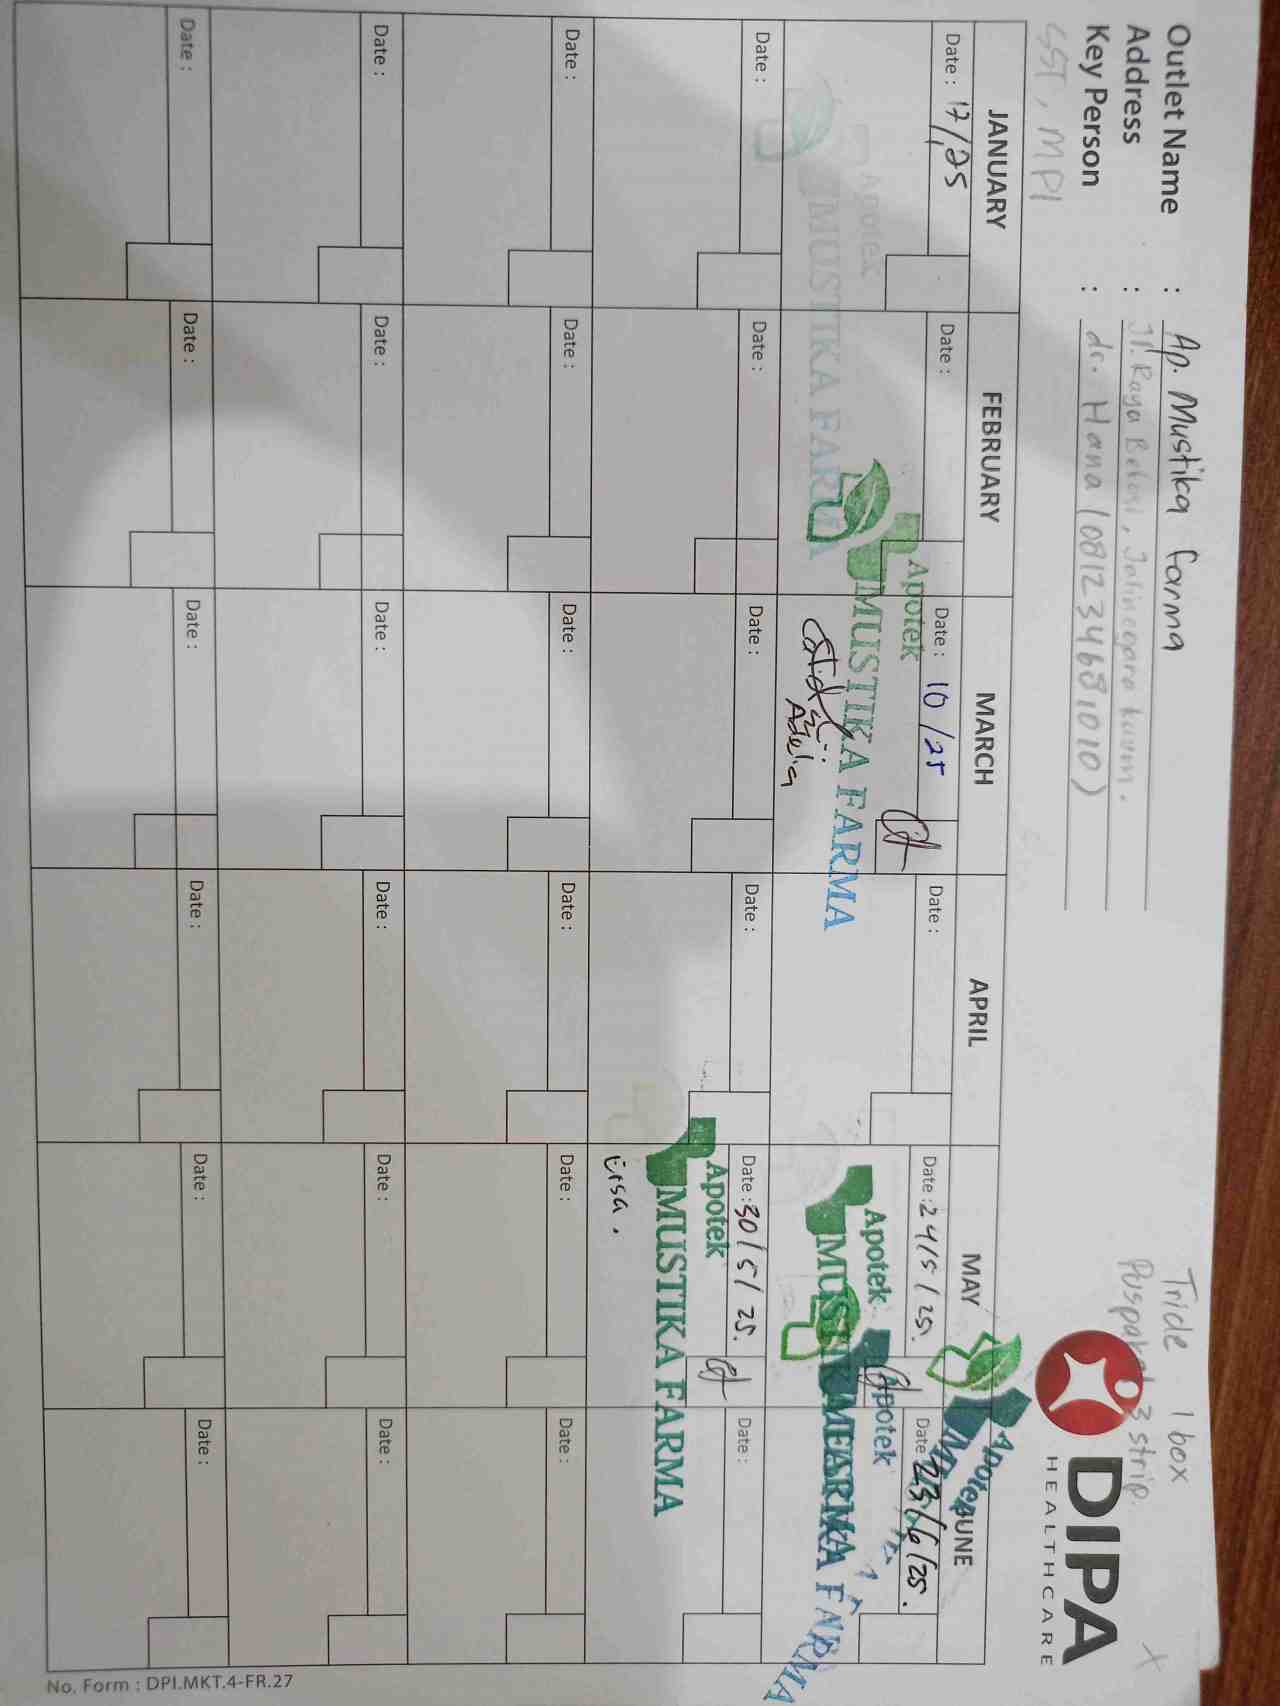 Outlet Name : Ap. Mustika Farma
Address : Jl. Raya Bekasi, Jatinegara kaum.
Key Person : dr. Hana (081234681010)
SST, MPI
Tride 1 box
3 strip.
DIPA
HEALTHCARE
JANUARY FEBRUARY MARCH APRIL MAY JUNE
Date : 17/25 Date : Date : 10/25 Date : Date : 24/5/25. Date 23/6/25.
Apotek
MUSTIKA FARMA
Apotek
MUSTIKA FARMA
Adela
Apotek
Apotek
Apotek
FARMA
Date : Date : Date : Date : Date : 30/5/25. Date :
Apotek
MUSTIKA FARMA
Ersa.
Date : Date : Date : Date : Date : Date :
Date : Date : Date : Date : Date : Date :
Date : Date : Date : Date : Date : Date :
No. Form : DPI.MKT.4-FR.27